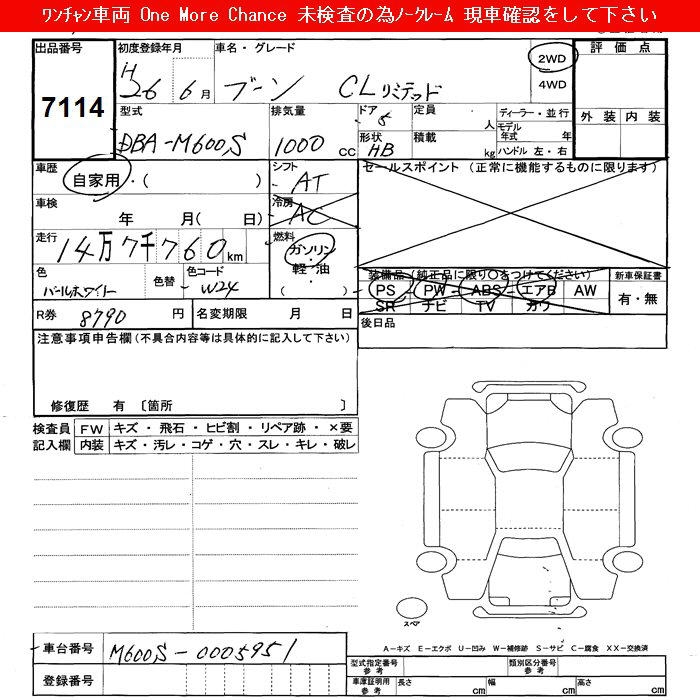 ﾜﾝﾁｬﾝ車両 One More Chance 未検査の為ﾉｰｸﾚｰﾑ 現車確認をして下さい
出品番号 初度登録年月 車名・グレード 評価点
7114 H26 6月 ブーン CLリミテッド 2WD 4WD
型式 排気量 ドア 定員 ディーラー・並行 外装 内装
DBA-M600S 1000cc 5 人 モデル年式 年
形状 積載 HB kg ハンドル 左・右
車歴 シフト セールスポイント (正常に機能するものに限ります)
自家用・( ) AT
車検 冷房
年 月( 日) AC
走行 燃料
14万7千760km ガソリン・軽・油・( )
色 色替 色コード 装備品(純正品に限り○をつけてください) 新車保証書
パールホワイト W24 PS PW ABS エアB AW 有・無
SR ナビ TV カワ
R券 8790円 名変期限 月 日 後日品
注意事項申告欄(不具合内容等は具体的に記入して下さい)
修復歴 有 〔箇所 〕
検査員 FW キズ・飛石・ヒビ割・リペア跡・×要
記入欄 内装 キズ・汚レ・コゲ・穴・スレ・キレ・破レ
スペア
A-キズ E-エクボ U-凹み W-補修跡 S-サビ C-腐食 XX-交換済
車台番号 M600S-0005951
型式指定番号 参考 類別区分番号 参考
登録番号 車庫証明用 参考 長さ cm 幅 cm 高さ cm